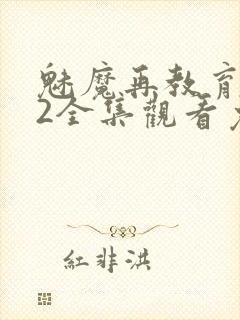 魅魔再教育
2全集觀看
紅非洪